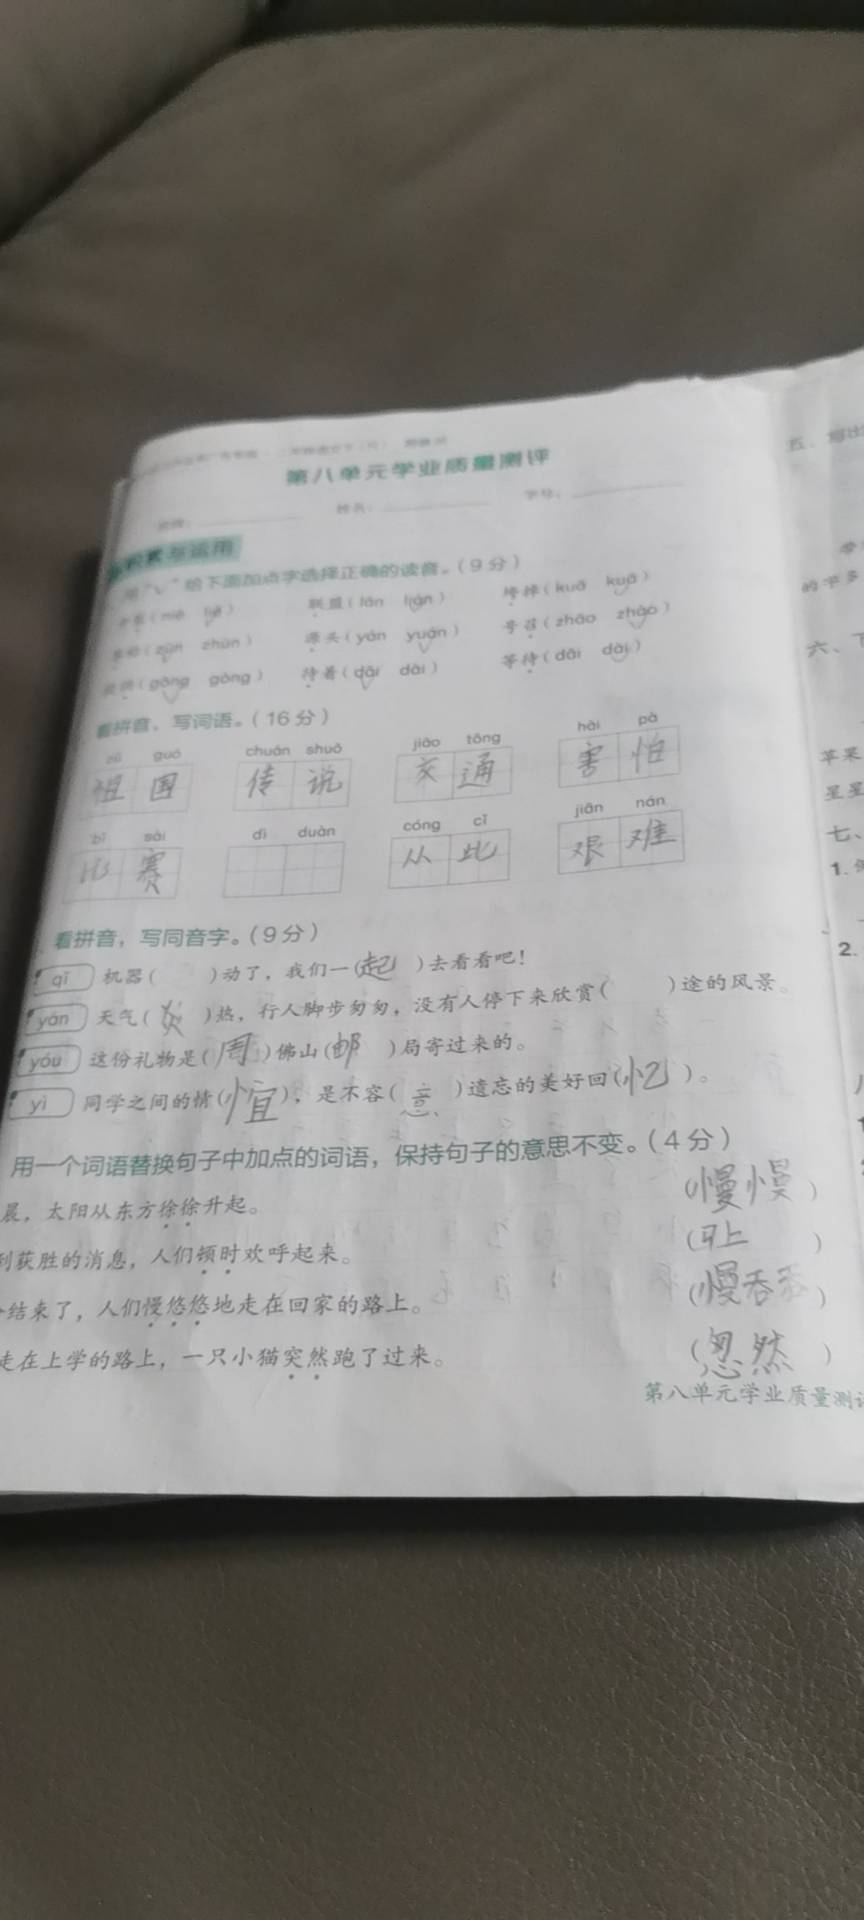 第八单元学业质量测评
姓名： 学号：
积累与运用
用“√”给下面加点字选择正确的读音。(9分)
联盟(lán lián)
(kuā kuǎ)
(zūn zhūn) 源头(yán yuán) 号召(zhāo zhào)
(gōng gòng) 待着(dāi dài) 等待(dāi dài)
看拼音，写词语。(16分)
zǔ guó chuán shuō jiāo tōng hài pà
祖国 传说 交通 害怕
bǐ sài dì duàn cóng cǐ jiān nán
比赛 从此 艰难
看拼音，写同音字。(9分)
qǐ 机器( )动了，我们一(起)去看看吧！
yán 天气(炎)热，行人脚步匆匆，没有人停下来欣赏( )途的风景。
yóu 这份礼物是(周)佛山(邮)局寄过来的。
yì 同学之间的情(谊)，是不容(意)遗忘的美好回(忆)。
用一个词语替换句子中加点的词语，保持句子的意思不变。(4分)
晨，太阳从东方徐徐升起。 (慢慢)
到获胜的消息，人们顿时欢呼起来。 (马上)
结束了，人们慢悠悠地走在回家的路上。 (慢吞吞)
走在上学的路上，一只小猫突然跑了过来。 (忽然)
第八单元学业质量测评
五、写出
的苹多
六、下
苹果
星星
七、
1.
2.